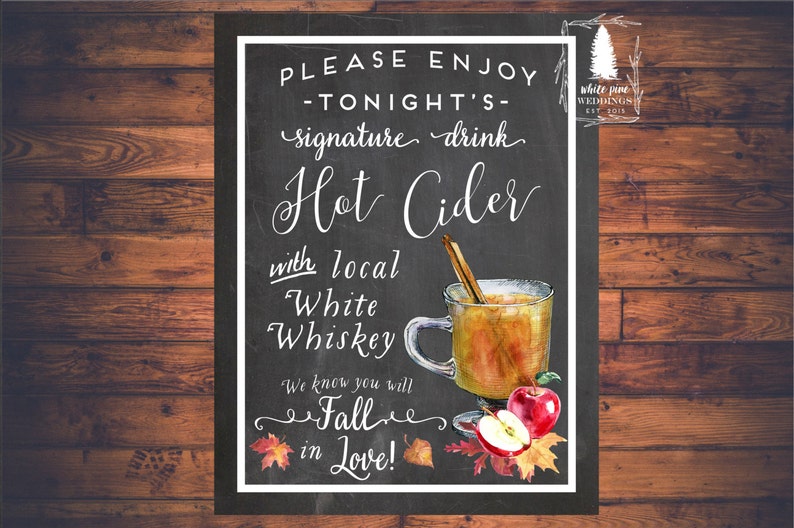 PLEASE ENJOY
-TONIGHT'S-
signature drink
Hot Cider
with local
White
Whiskey
We know you will
Fall
in Love!
white pine
WEDDINGS
EST. 2015